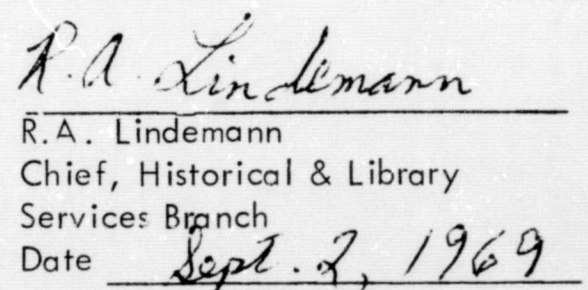 R.A. Lindemann
R.A. Lindemann
Chief, Historical & Library
Services Branch
Date Sept. 2, 1969